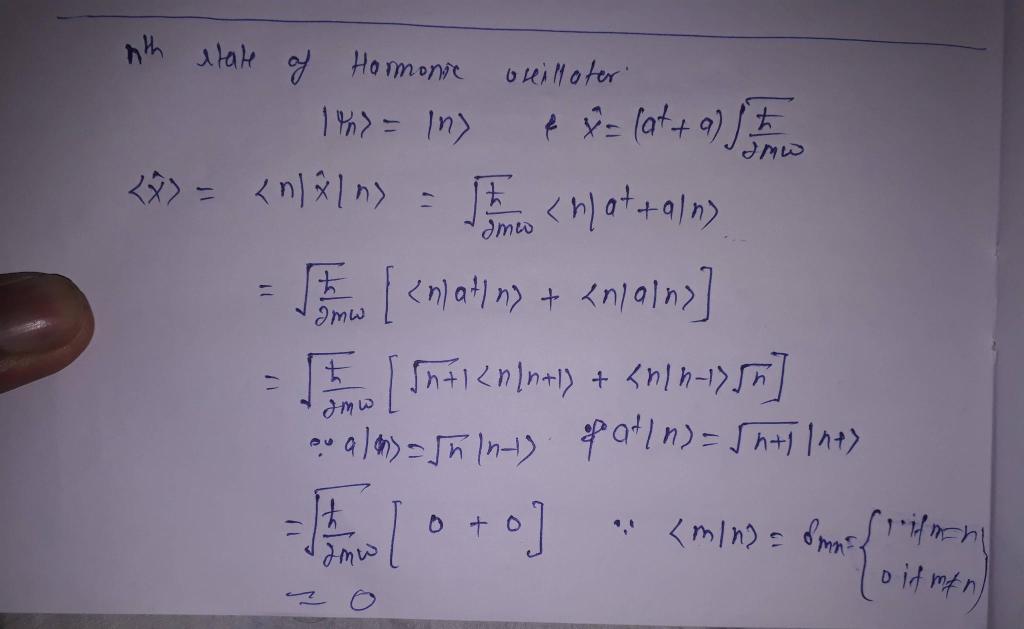 nth state of Harmonic oscillator
|ψn> = |n> & x̂ = (a† + a) √(ħ/2mω)
<x̂> = <n|x̂|n> = √(ħ/2mω) <n|a†+a|n>
= √(ħ/2mω) [<n|a†|n> + <n|a|n>]
= √(ħ/2mω) [√n+1 <n|n+1> + <n|n-1>√n]
∵ a|n> = √n |n-1> & a†|n> = √n+1 |n+>
= √(ħ/2mω) [0 + 0] ∵ <m|n> = δmn = {1 if m=n
0 if m≠n}
= 0